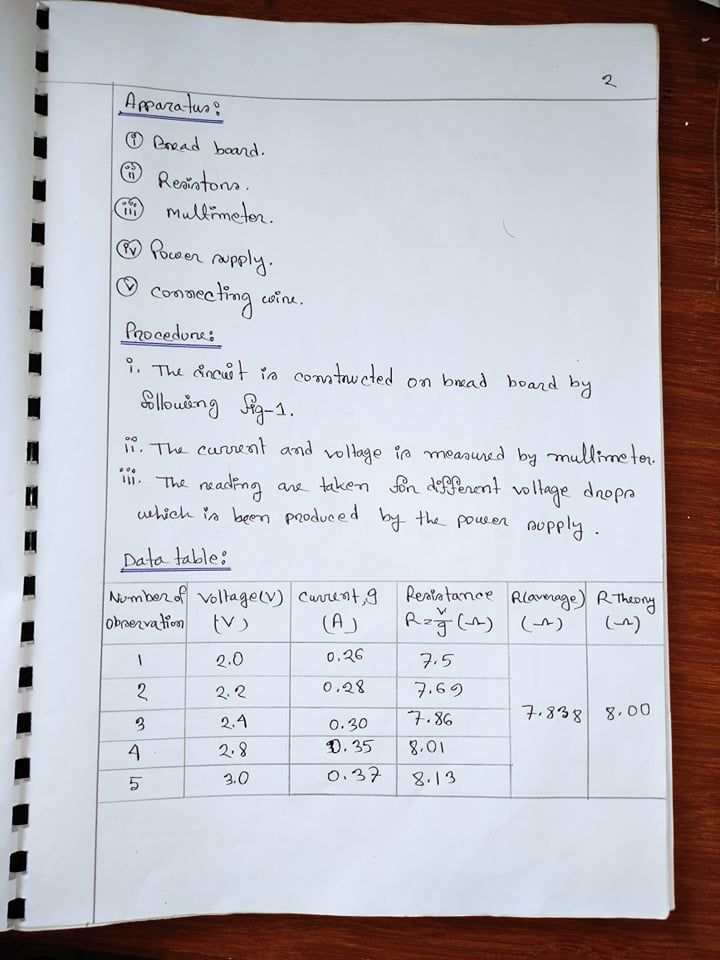 2
Apparatus:
i Bread board.
ii Resistors.
iii Multimeter.
iv Power supply.
v Connecting wire.
Procedure:
i. The circuit is constructed on bread board by
following fig-1.
ii. The current and voltage is measured by multimeter.
iii. The reading are taken for different voltage drops
which is been produced by the power supply.
Data table:
Number of observation | Voltage(V) (V) | Current, I (A) | Resistance R=V/I (Ω) | R(average) (Ω) | R Theory (Ω)
1 | 2.0 | 0.26 | 7.5 | 7.838 | 8.00
2 | 2.2 | 0.28 | 7.69
3 | 2.4 | 0.30 | 7.86
4 | 2.8 | 0.35 | 8.01
5 | 3.0 | 0.37 | 8.13